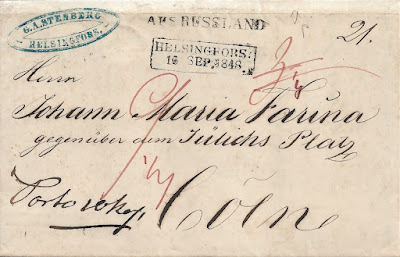 G.A. STENBERG
HELSINGFORS.
AUS RUSSLAND
HELSINGFORS.
16 SEP. 1848
21.
Herrn
Johann Maria Farina
gegenüber dem Jülichs Platz
Cöln